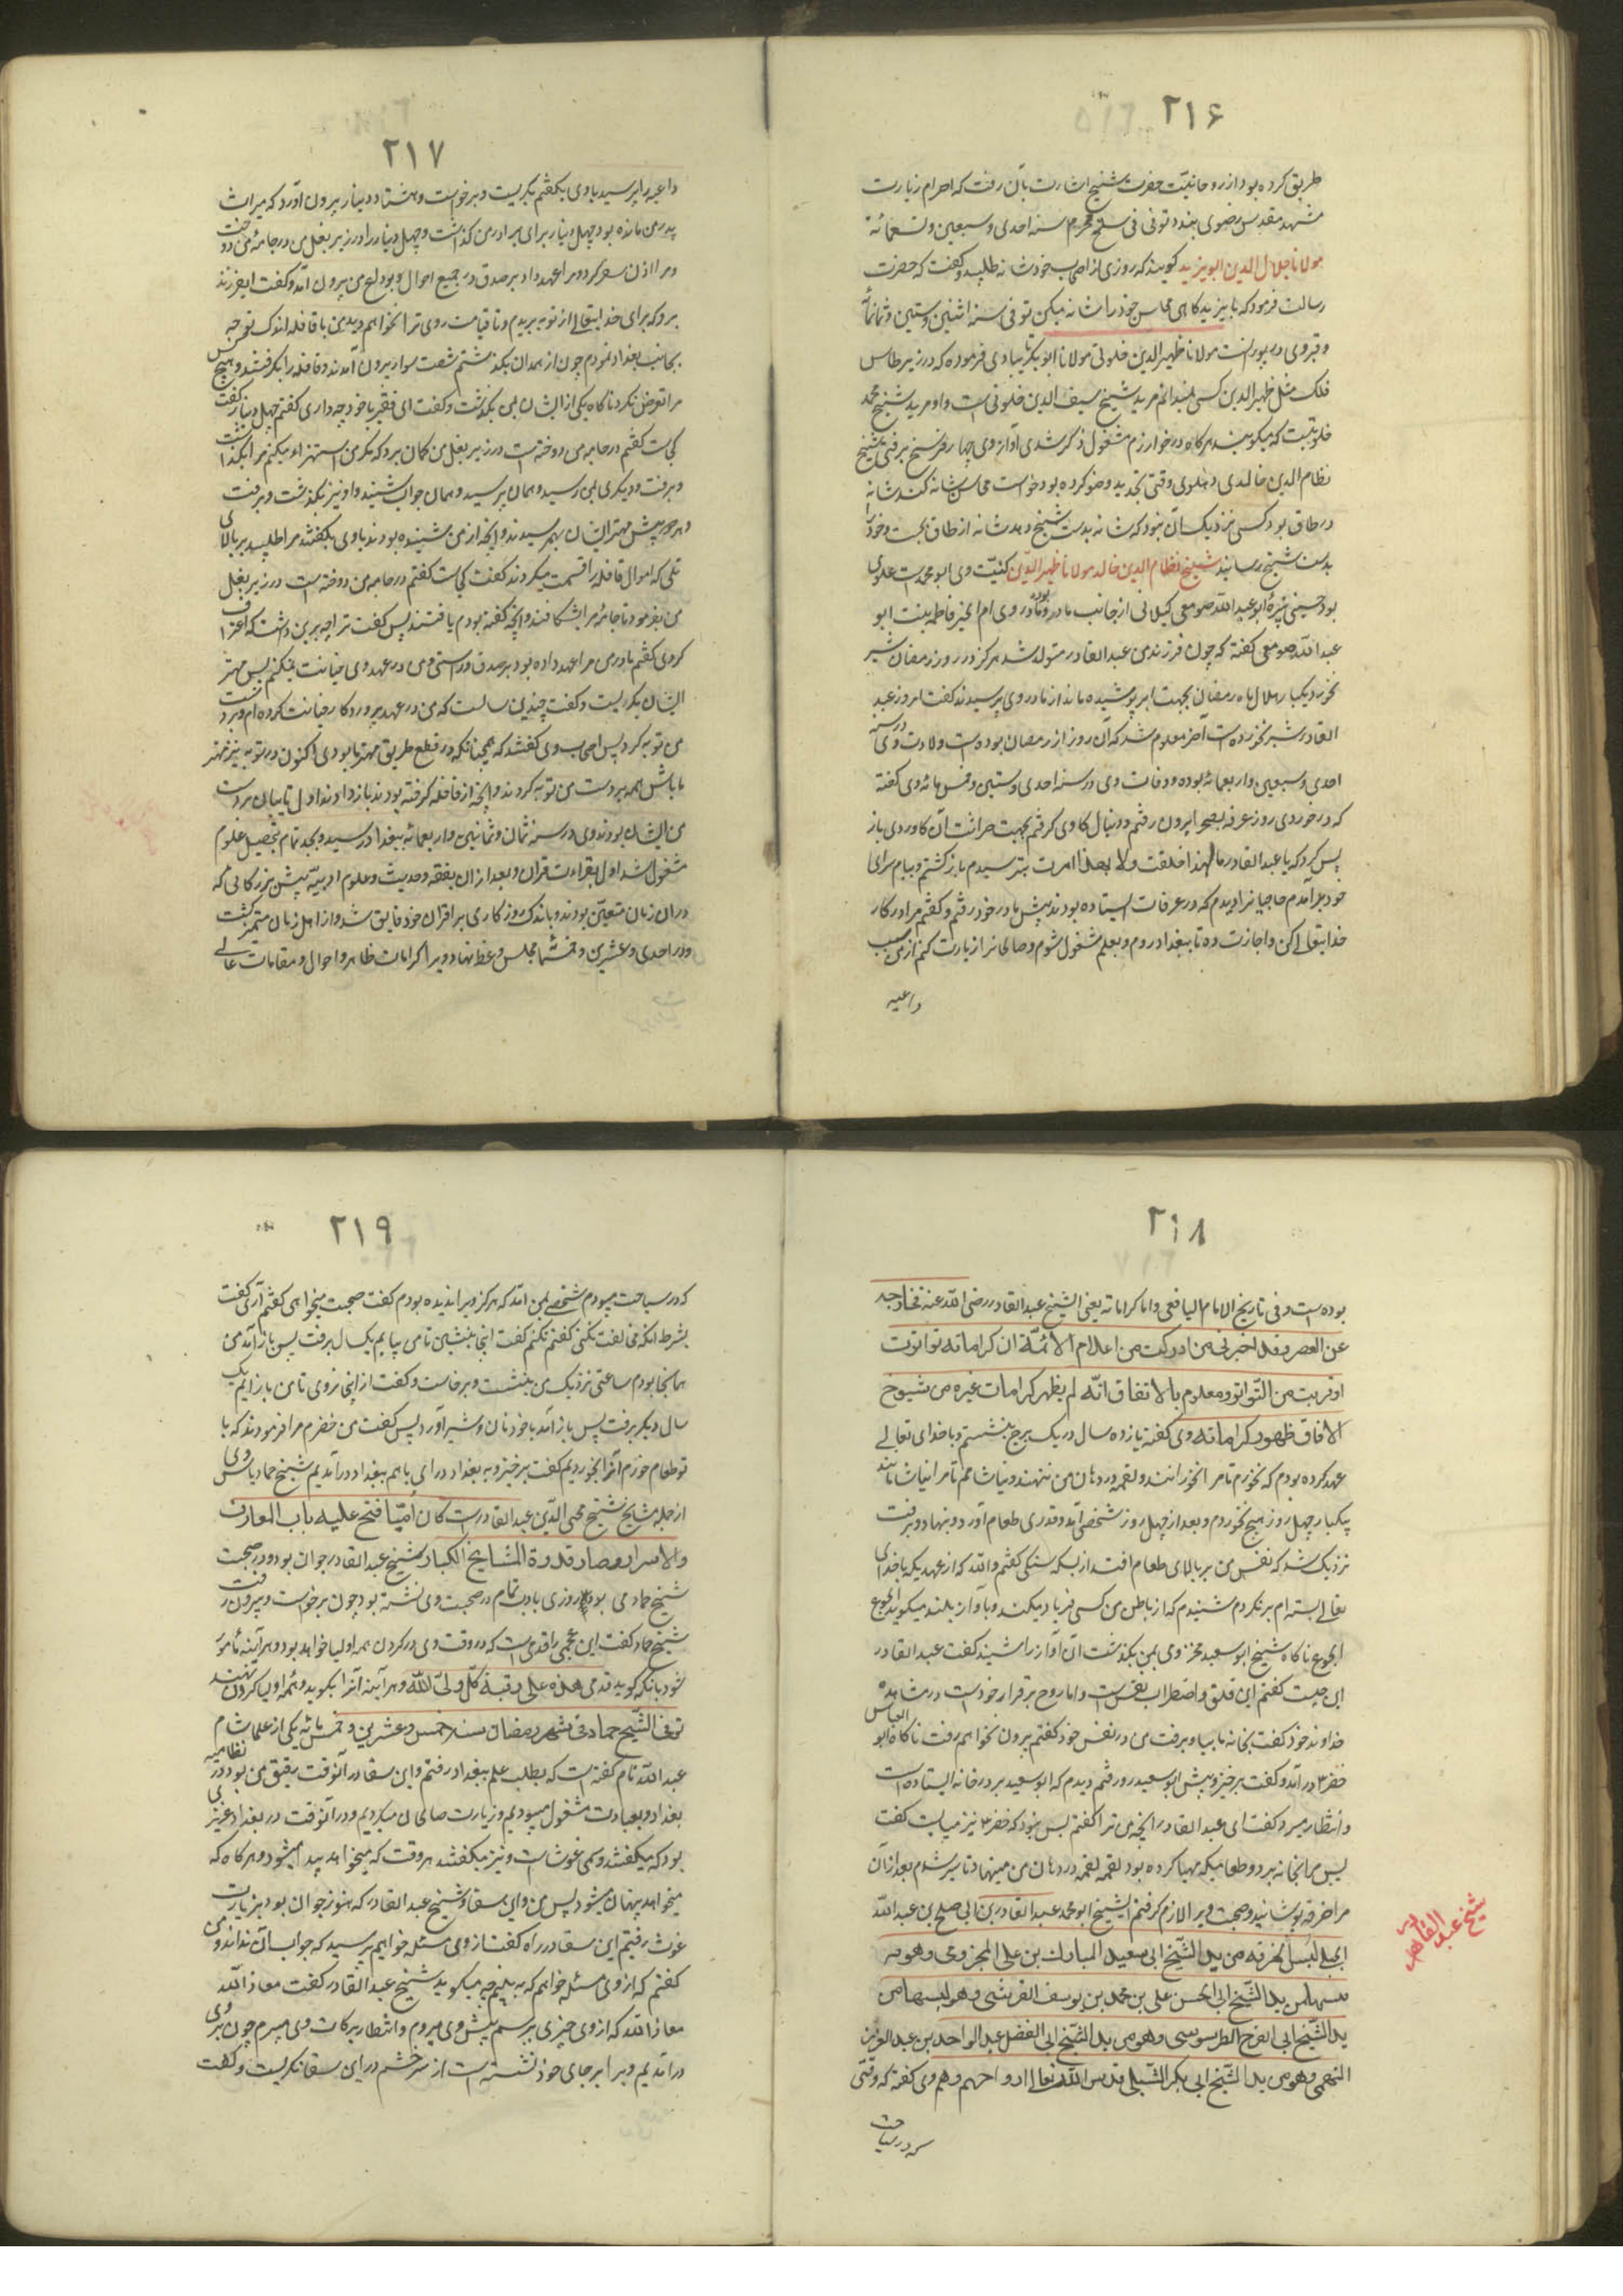 ۲۱۶
طریق کرده بود از روحانیت حضرت شیخ اشارت بآن رفت که احرام زیارت
مشهد مقدس رضوی بندد توفی فی سلخ محرم سنه احدی و سبعین و تسعمائة
مولانا جلال الدین ابویزید گویند که روزی از اصحاب خود شانه طلبید و گفت که حضرت
رسالت فرمود که بایزید گاهی محاسن خود را شانه میکن توفی سنه اثنین و ستین و ثمانمائة
و قبر وی در پورانست مولانا ظهیر الدین خلوتی مولانا ابوبکر تایبادی فرموده که در زیر طاس
فلک مثل ظهیر الدین کسی نمیدانم مرید شیخ سیف الدین خلوتی است و او مرید شیخ محمد
خلوتیست که میگویند هر گاه در خوارزم مشغول ذکر شدی آواز وی چهار فرسخ برفتی شیخ
نظام الدین خالدی دهلوی وقتی تجدید وضو کرده بود خواست محاسن شانه کند شانه
در طاق بود کسی نزدیک آن نبود که شانه بدست شیخ دهد شانه از طاق بجست و خود را
بدست شیخ رسانید شیخ نظام الدین خاله مولانا ظهیر الدین کنیت وی ابو محمد است علوی
بود حسینی نبیره ابو عبد الله صومعی گیلانی از جانب مادر و مادر وی ام الخیر فاطمه بنت ابو
عبد الله صومعی گفته که چون فرزند من عبد القادر متولد شد هرگز در روز رمضان شیر
نخورد یکبار هلال ماه رمضان بجهت ابر پوشیده ماند از مادر وی پرسیدند گفت امروز عبد
القادر شیر نخورده است آخر معلوم شد که آن روز از رمضان بوده است ولادت وی در سنه
احدی و سبعین و اربعمائه بوده و وفات وی در سنه احدی و ستین و خمسمائه وی گفته
که در خوردی روز عرفه بصحرا بیرون رفتم و دنبال گاوی گرفتم بجهت حراثت آن گاو روی باز
پس کرد که یا عبد القادر ما لهذا خلقت ولا بهذا امرت بترسیدم بازگشتم و ببام سرای
خود بر آمدم حاجیانرا دیدم که در عرفات ایستاده بودند پیش مادر خود رفتم و گفتم مرا در کار
خدایتعالی کن و اجازت ده تا ببغداد روم و بعلم مشغول شوم و صالحانرا زیارت کنم از من سبب
داعیه
۲۱۷
داعیه را پرسید باوی بگفتم بگریست و برخواست و هشتاد دینار بیرون آورد که میراث
پدر من مانده بود چهل دینار برای برادر من گذاشت و چهل دینار را در زیر بغل من در جامه من دوخت
و مرا اذن سفر کرد و مرا عهد داد بر صدق در جمیع احوال و بوداع من بیرون آمد و گفت ای فرزند
برو که برای خدایتعالی از تو ببریدم و تا قیامت روی ترا نخواهم دید من با قافله اندک توجه
بجانب بغداد نمودم چون از همدان بگذشتم شصت سوار بیرون آمدند و قافله را بگرفتند و هیچکس
مرا تعرض نکرد ناگاه یکی از ایشان بمن بگذشت و گفت ای فقیر با خود چه داری گفتم چهل دینار گفت
کجاست گفتم در جامه من دوخته است در زیر بغل من گمان برد که مگر من استهزاء میکنم مرا بگذاشت
و برفت و دیگری بمن رسید و همان پرسید و همان جواب شنید و او نیز بگذشت و برفت
و هر دو پیش مهتر ایشان بهم رسیدند و آنچه از من شنیده بودند باوی بگفتند مرا طلبید بر بالای
تلی که اموال قافله را قسمت میکردند گفت کجاست گفتم در جامه من دوخته است در زیر بغل
من بفرمود تا جامه مرا بشکافند و آنچه گفته بودم یافتند پس گفت ترا چه برین داشت که اعتراف
کردی گفتم مادر من مرا عهد داده بود بر صدق و راستی و من در عهد وی خیانت نمیکنم پس مهتر
ایشان بگریست و گفت چندین سالست که من در عهد پروردگار خیانت کرده ام و بر دست
من توبه کرد پس اصحاب وی گفتند که همچنانکه در قطع طریق مهتر ما بودی اکنون در توبه نیز مهتر
ما باش همه بر دست من توبه کردند و آنچه از قافله گرفته بودند باز دادند اول تایبان بر دست
من ایشان بودند وی در سنه ثمان و ثمانین و اربعمائه ببغداد رسید و بجد تمام بتحصیل علوم
مشغول شد اول بقراءت قران و بعد از ان بفقه و حدیث و علوم ادبیه پیش بزرگانی که
در ان زمان متعین بودند و باندک روزگاری بر اقران خود فایق شد و از اهل زمان متمیز گشت
و در احدی و عشرین و خمسمائه مجلس وعظ نهاد و ویرا کرامات ظاهر و احوال و مقامات عالی
۲۱۸
بوده است و فی تاریخ الامام الیافعی و اما کراماته یعنی الشیخ عبد القادر رضی الله عنه فخارجة
عن الحصر و قد اخبرنی من ادرکت من اعلام الائمة ان کراماته تواترت
او قربت من التواتر و معلوم بالاتفاق انه لم یظهر کرامات غیره من شیوخ
الافاق ظهور کراماته وی گفته یازده سال در یک برج بنشستم و با خدای تعالی
عهد کرده بودم که نخورم تا مرا نخورانند و لقمه در دهان من ننهند و نیاشامم تا مرا نیاشامانند
یکبار چهل روز هیچ نخوردم و بعد از چهل روز شخصی آمد و قدری طعام آورد و بنهاد و برفت
نزدیک شد که نفس من بر بالای طعام افتد از بسکه گرسنگی گفتم والله که از عهدیکه با خدای
تعالی بسته ام بر نگردم شنیدم که از باطن من کسی فریاد میکند و بآواز بلند میگوید الجوع
الجوع ناگاه شیخ ابو سعید مخزومی بمن بگذشت آن آواز را شنید گفت عبد القادر
این چیست گفتم این قلق و اضطراب نفس است و اما روح برقرار خود است در مشاهده
خداوند خود گفت بخانه ما بیا و برفت من در نفس خود گفتم بیرون نخواهم رفت ناگاه ابو العباس
خضر ۳ در آمد و گفت برخیز و پیش ابو سعید رو رفتم دیدم که ابو سعید بر در خانه ایستاده است
و انتظار میبرد گفت ای عبد القادر آنچه من ترا گفتم بس نبود که خضر ۳ نیز میبایست گفت
پس مرا بخانه برد و طعامیکه مهیا کرده بود لقمه لقمه در دهان من مینهاد تا سیر شدم بعد ازان
مرا خرقه پوشانید و صحبت ویرا لازم گرفتم الشیخ ابو محمد عبد القادر بن ابی صالح بن عبد الله
الجیلی لبس الخرقه من ید الشیخ ابی سعید المبارک بن علی المخزومی و هو
لبسها من ید الشیخ ابی الحسن علی بن محمد بن یوسف القرشی و هو لبسها من
ید الشیخ ابی الفرح الطرسوسی و هو من ید الشیخ ابی الفضل عبد الواحد بن عبد العزیز
التمیمی و هو من ید الشیخ ابی بکر الشبلی قدس الله تعالی ارواحهم و هم وی گفته که وقتی
که در سیاحت
شیخ عبد القادر
۲۱۹
که در سیاحت میبودم شخصی بمن آمد که هرگز ویرا ندیده بودم گفت صحبت میخواهی گفتم آری گفت
بشرط آنکه مخالفت نکنی گفتم نکنم گفت اینجا بنشین تا من بیایم یکسال برفت پس باز آمد من
همانجا بودم ساعتی نزدیک من بنشست و برخاست و گفت از اینجا نروی تا من باز آیم یک
سال دیگر برفت پس باز آمد با خود نان و شیر آورد پس گفت من خضرم مرا فرمودند که با
تو طعام خورم آنرا بخوردیم گفت برخیز و به بغداد در ای باهم ببغداد در آمدیم شیخ حماد دباس وی
از جمله مشایخ شیخ محی الدین عبد القادر است کان امیا فتح علیه باب المعارف
والاسرار و صار قدوة المشایخ الکبار شیخ عبد القادر جوان بود و در صحبت
شیخ حماد می بود روزی بادب تمام در صحبت وی نشسته بود چون برخواست و بیرون رفت
شیخ حماد گفت این عجمی را قدمی است که در وقت وی در گردن همه اولیا خواهد بود و هر آینه مامور
شود بآنکه گوید قدمی هذه علی رقبة کل ولی الله و هر آینه آنرا بگوید و همه اولیا گردن نهند
توفی الشیخ حماد فی شهر رمضان سنه خمس و عشرین و خمسمائه یکی از علما شام
عبد الله نام گفته است که بطلب علم ببغداد رفتم و ابن سقا در آنوقت رفیق من بود در نظامیه
بغداد و بعبادت مشغول میبودیم و زیارت صالحان میکردیم و در آنوقت در بغداد عزیزی
بود که میگفتند وی غوث است و نیز میگفتند هر وقت که میخواهد پیدا میشود و هر گاه که
میخواهد پنهان میشود پس من و ابن سقا و شیخ عبد القادر که هنوز جوان بود بزیارت
غوث رفتیم ابن سقا در راه گفت از وی مسئله خواهم پرسید که جواب آن نداند و من
گفتم که از وی مسئله خواهم که به بینم چه میگوید شیخ عبد القادر گفت معاذ الله
معاذ الله که از وی چیزی پرسم پیش وی میروم و انتظار برکات وی میبرم چون بر وی
در آمدیم ویرا بر جای خود نشسته است از سر خشم در ابن سقا نگریست و گفت